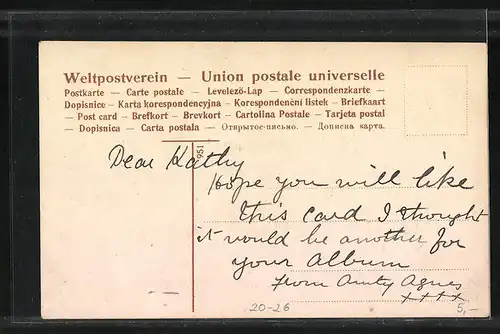 Weltpostverein — Union postale universelle
Postkarte — Carte postale — Levelező-Lap — Correspondenzkarte —
Dopisnice — Karta korespondencyjna — Korespondenční lístek — Briefkaart
— Post card — Brefkort — Brevkort — Cartolina Postale — Tarjeta postal
— Dopisnica — Carta postala — Открытое-письмо. — Дописна карта.
951
Dear Kathy
Hope you will like
this card I thought
it would be another for
your album
from Aunty Agnes
xxxx
20-26
5,-